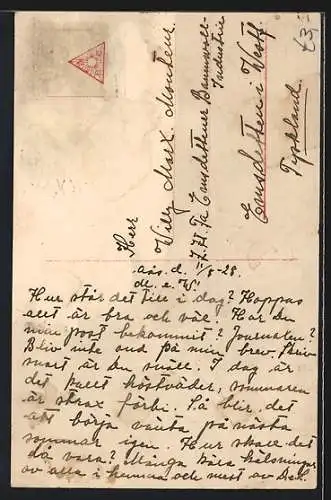 Herr
Willy Marx. Monheim.
Emsdettener Baumwoll-
Industrie
Emsdetten i Westf
Tyskland.
Hur står det till i dag? Hoppas
allt är bra och väl. Har du
min post bekommit? Journalen?
Bliv inte ond på min brev. Skriv
snart, är du snäll. I dag är
det kallt höstväder, sommaren
är strax förbi. Så blir det
att börja vänta på nästa
sommar igen. Hur skall det
då vara? Många kära hälsningar
av alla i hemmet och mest av